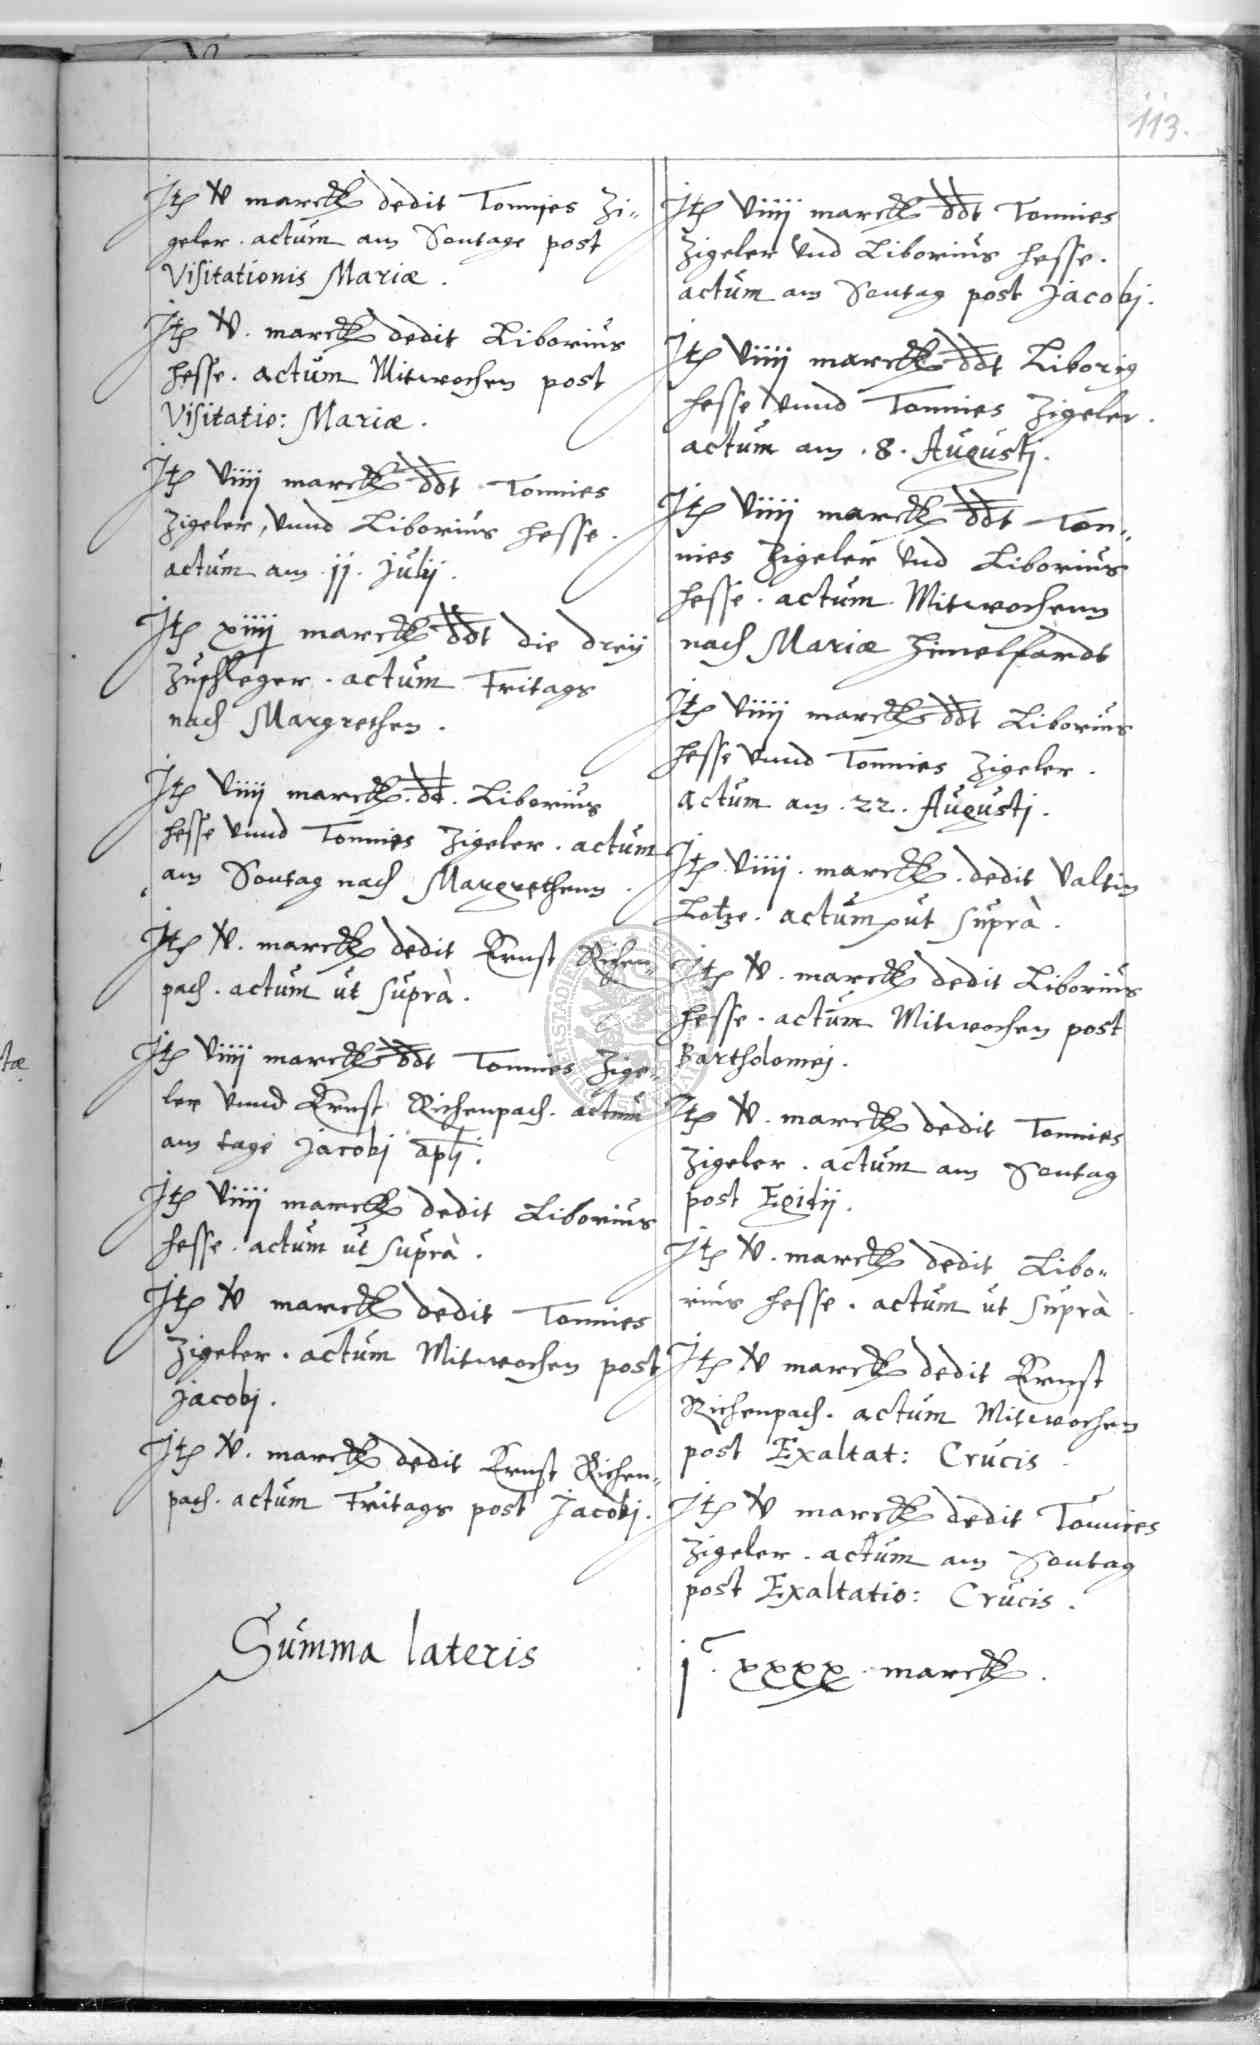 113.
Jtē v marck dedit Tonnies Zi-
geler . actum am Sontage post
Visitationis Mariæ .
Jtē v . marck dedit Liborius
Hesse . actum Mitwochen post
Visitatio: Mariæ .
Jtē viiij marck ddt Tonnies
Zigeler, vnnd Liborius Hesse .
actum am . jj . Julij .
Jtē xiiij marck ddt die dreij
Zuschleger . actum Fritags
nach Margrethen .
Jtē viiij marck . dt . Liborius
Hesse vnnd Tonnies Zigeler . actum
am Sontag nach Margrethenn .
Jtē v . marck dedit Ernst Richen-
pach . actum ut suprà .
Jtē viiij marck ddt Tonnies Zige-
ler vnnd Ernst Richenpach . actum
am tage Jacobj apli .
Jtē viiij marck dedit Liborius
Hesse . actum ut suprà .
Jtē v marck dedit Tonnies
Zigeler . actum Mitwochen post
Jacobj .
Jtē v . marck dedit Ernst Richen-
pach . actum Fritags post Jacobj .
Jtē viiij marck ddt Tonnies
Zigeler vnd Liborius Hesse .
actum am Sontag post Jacobj .
Jtē viiij marck ddt Liborig
Hesse vnnd Tonnies Zigeler .
actum am . 8 . Augustj .
Jtē viiij marck ddt Ton-
nies Zigeler vnd Liborius
Hesse . actum Mitwochenn
nach Mariæ Himelfardt
Jtē viiij marck ddt Liborius
Hesse vnnd Tonnies Zigeler .
actum am . 22 . Augustj .
Jtē viiij . marck . dedit Valtin
Lotze . actum ut suprà .
Jtē v . marck dedit Liborius
Hesse . actum Mitwochen post
Bartholomej .
Jtē v . marck dedit Tonnies
Zigeler . actum am Sontag
post Egitij .
Jtē v . marck dedit Libo-
rius Hesse . actum ut suprà
Jtē v marck dedit Ernst
Richenpach . actum Mitwochen
post Exaltat: Crucis .
Jtē v marck dedit Tonnies
Zigeler . actum am Sontag
post Exaltatio: Crucis .
Summa lateris
jc . xxxx . marck .